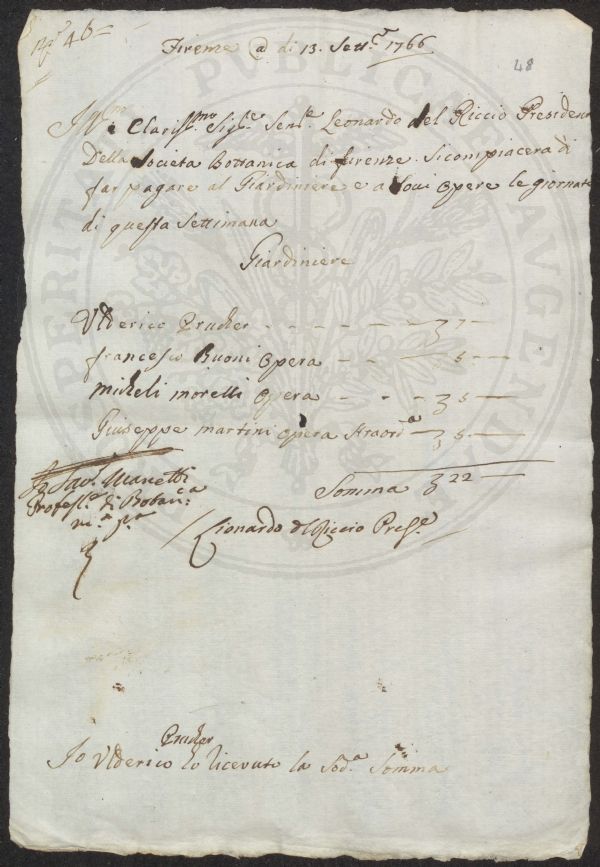 N.º 46
Firenze @ di 13. Sett.e 1766
48
Ill.mo e Clariss.mo Sig.re Sen.re Leonardo del Riccio Presiden
Della Societa Bottanica di firenze. Si compiacerà di
far pagare al Giardiniere e a Suoi Opere le giornate
di questa Settimana
Giardiniere
Ulderico Prucker - - - - - - 7 -
francesco Buoni Opera - - - 5 -
Micheli morelli Opera - - - 5 -
Giuseppe Martini Opera Straord.a - 5 -
Somma 22 -
Io Sav. Manetti
Profess.e di Botan.ca
m.o p.a
Lionardo del Riccio Pres.e
Prucker
Io Ulderico ho ricevuto la Sod.a Somma
PROSPERITATI PUBLICAE AUGENDAE